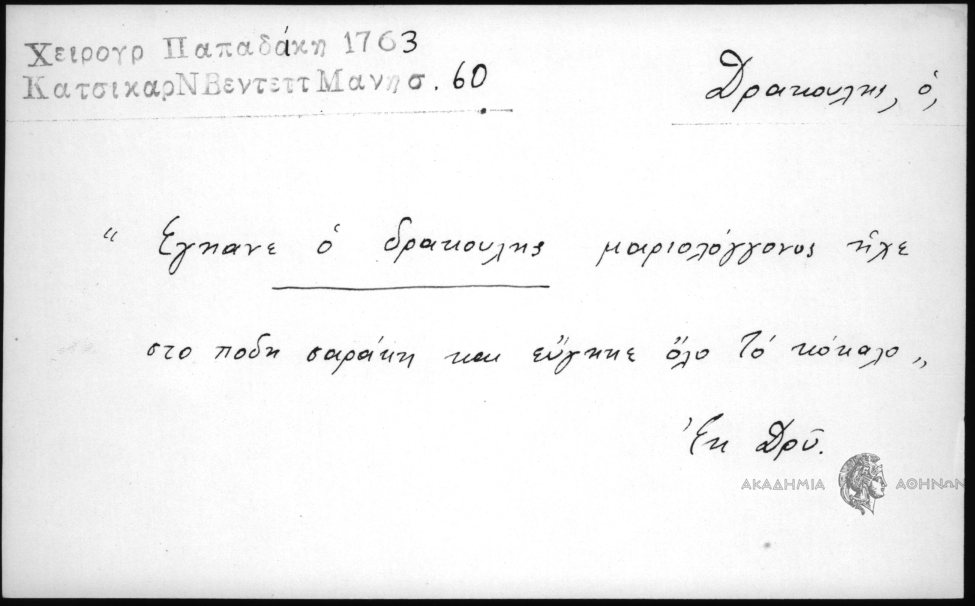 Χειρογρ Παπαδάκη 1763
ΚατσικαρΝΒεντεττΜανησ. 60
Δρακουλης, ὁ,
“ Εγιανε ὁ δρακουλης μαριολόγγονος ηἶχε
στο ποδη σαράκη και εὔγηκε ὅλο τό κόκαλο „
Ἐκ Δρῦ.
ΑΚΑΔΗΜΙΑ ΑΘΗΝΩΝ